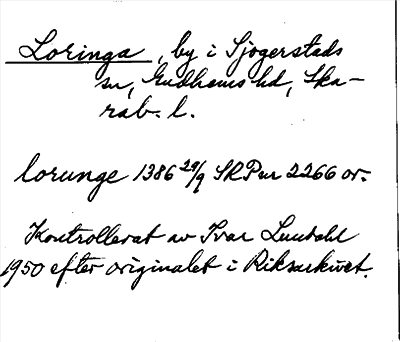 Loringa, by i Sjogerstads
sn, Gudhems hd, Ska-
rab. l.
lorunge 1386 29/9 SRPnr 2266 or.
Kontrollerat av Ivar Lundahl
1950 efter originalet i Riksarkivet.